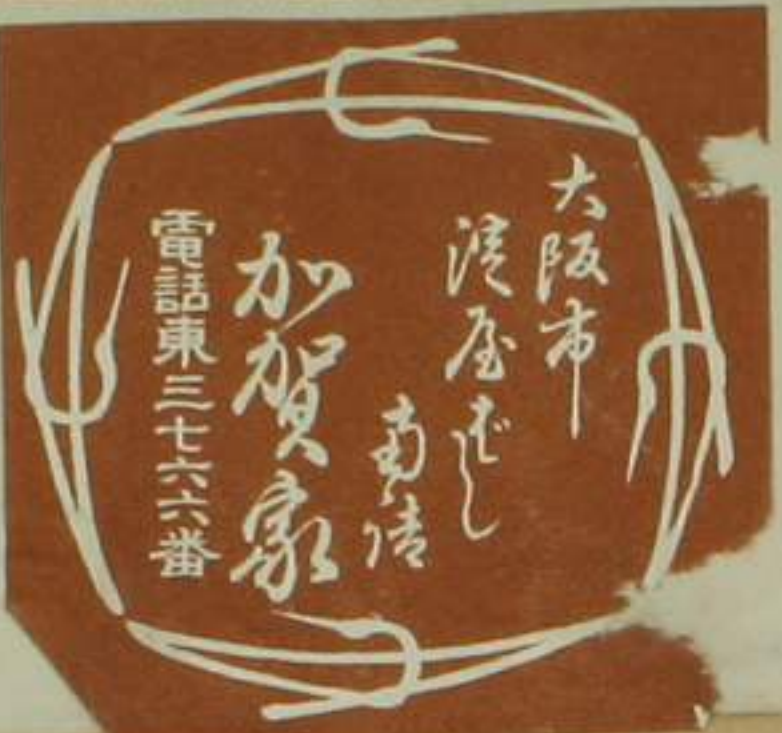 大阪市
淀屋ばし
南詰
加賀家
電話東三七六六番